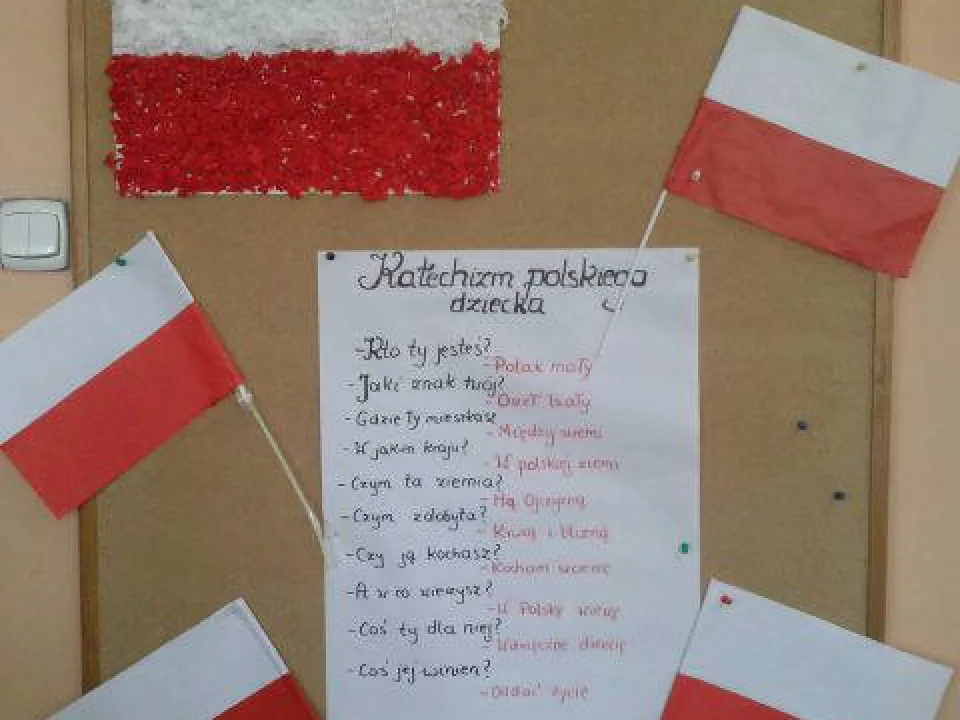 Katechizm polskiego
dziecka
-Kto ty jesteś?
-Polak mały
-Jaki znak twój?
-Orzeł biały
-Gdzie Ty mieszkasz
-Między swemi
-W jakim kraju?
-W polskiej ziemi
-Czym ta ziemia?
-Mą Ojczyzną
-Czym zdobyta?
-Krwią i blizną
-Czy ją kochasz?
-Kocham szczerze
-A w co wierzysz?
-W Polskę wierzę
-Coś ty dla niej?
-Wdzięczne dziecię
-Coś jej winien?
-Oddać życie